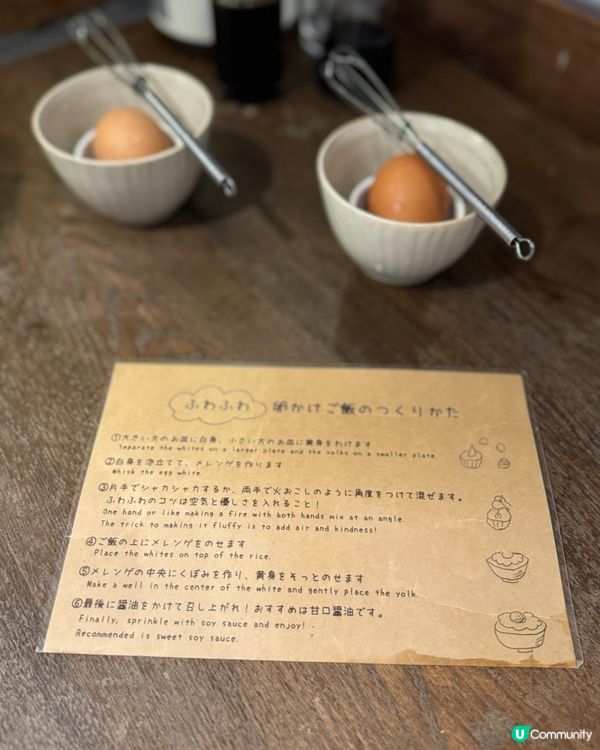 ふわふわ 卵かけご飯のつくりかた
①大きい方のお皿に白身、小さい方のお皿に黄身をわけます
Separate the whites on a larger plate and the yolks on a smaller plate.
②白身を泡立てて、メレンゲを作ります
Whisk the egg white.
③片手でシャカシャカするか、両手で火おこしのように角度をつけて混ぜます。
ふわふわのコツは空気と優しさを入れること！
One hand or like making a fire with both hands mix at an angle.
The trick to making it fluffy is to add air and kindness!
④ご飯の上にメレンゲをのせます
Place the whites on top of the rice.
⑤メレンゲの中央にくぼみを作り、黄身をそっとのせます
Make a well in the center of the white and gently place the yolk.
⑥最後に醤油をかけて召し上がれ！おすすめは甘口醤油です。
Finally, sprinkle with soy sauce and enjoy!
Recommended is sweet soy sauce.
U Community